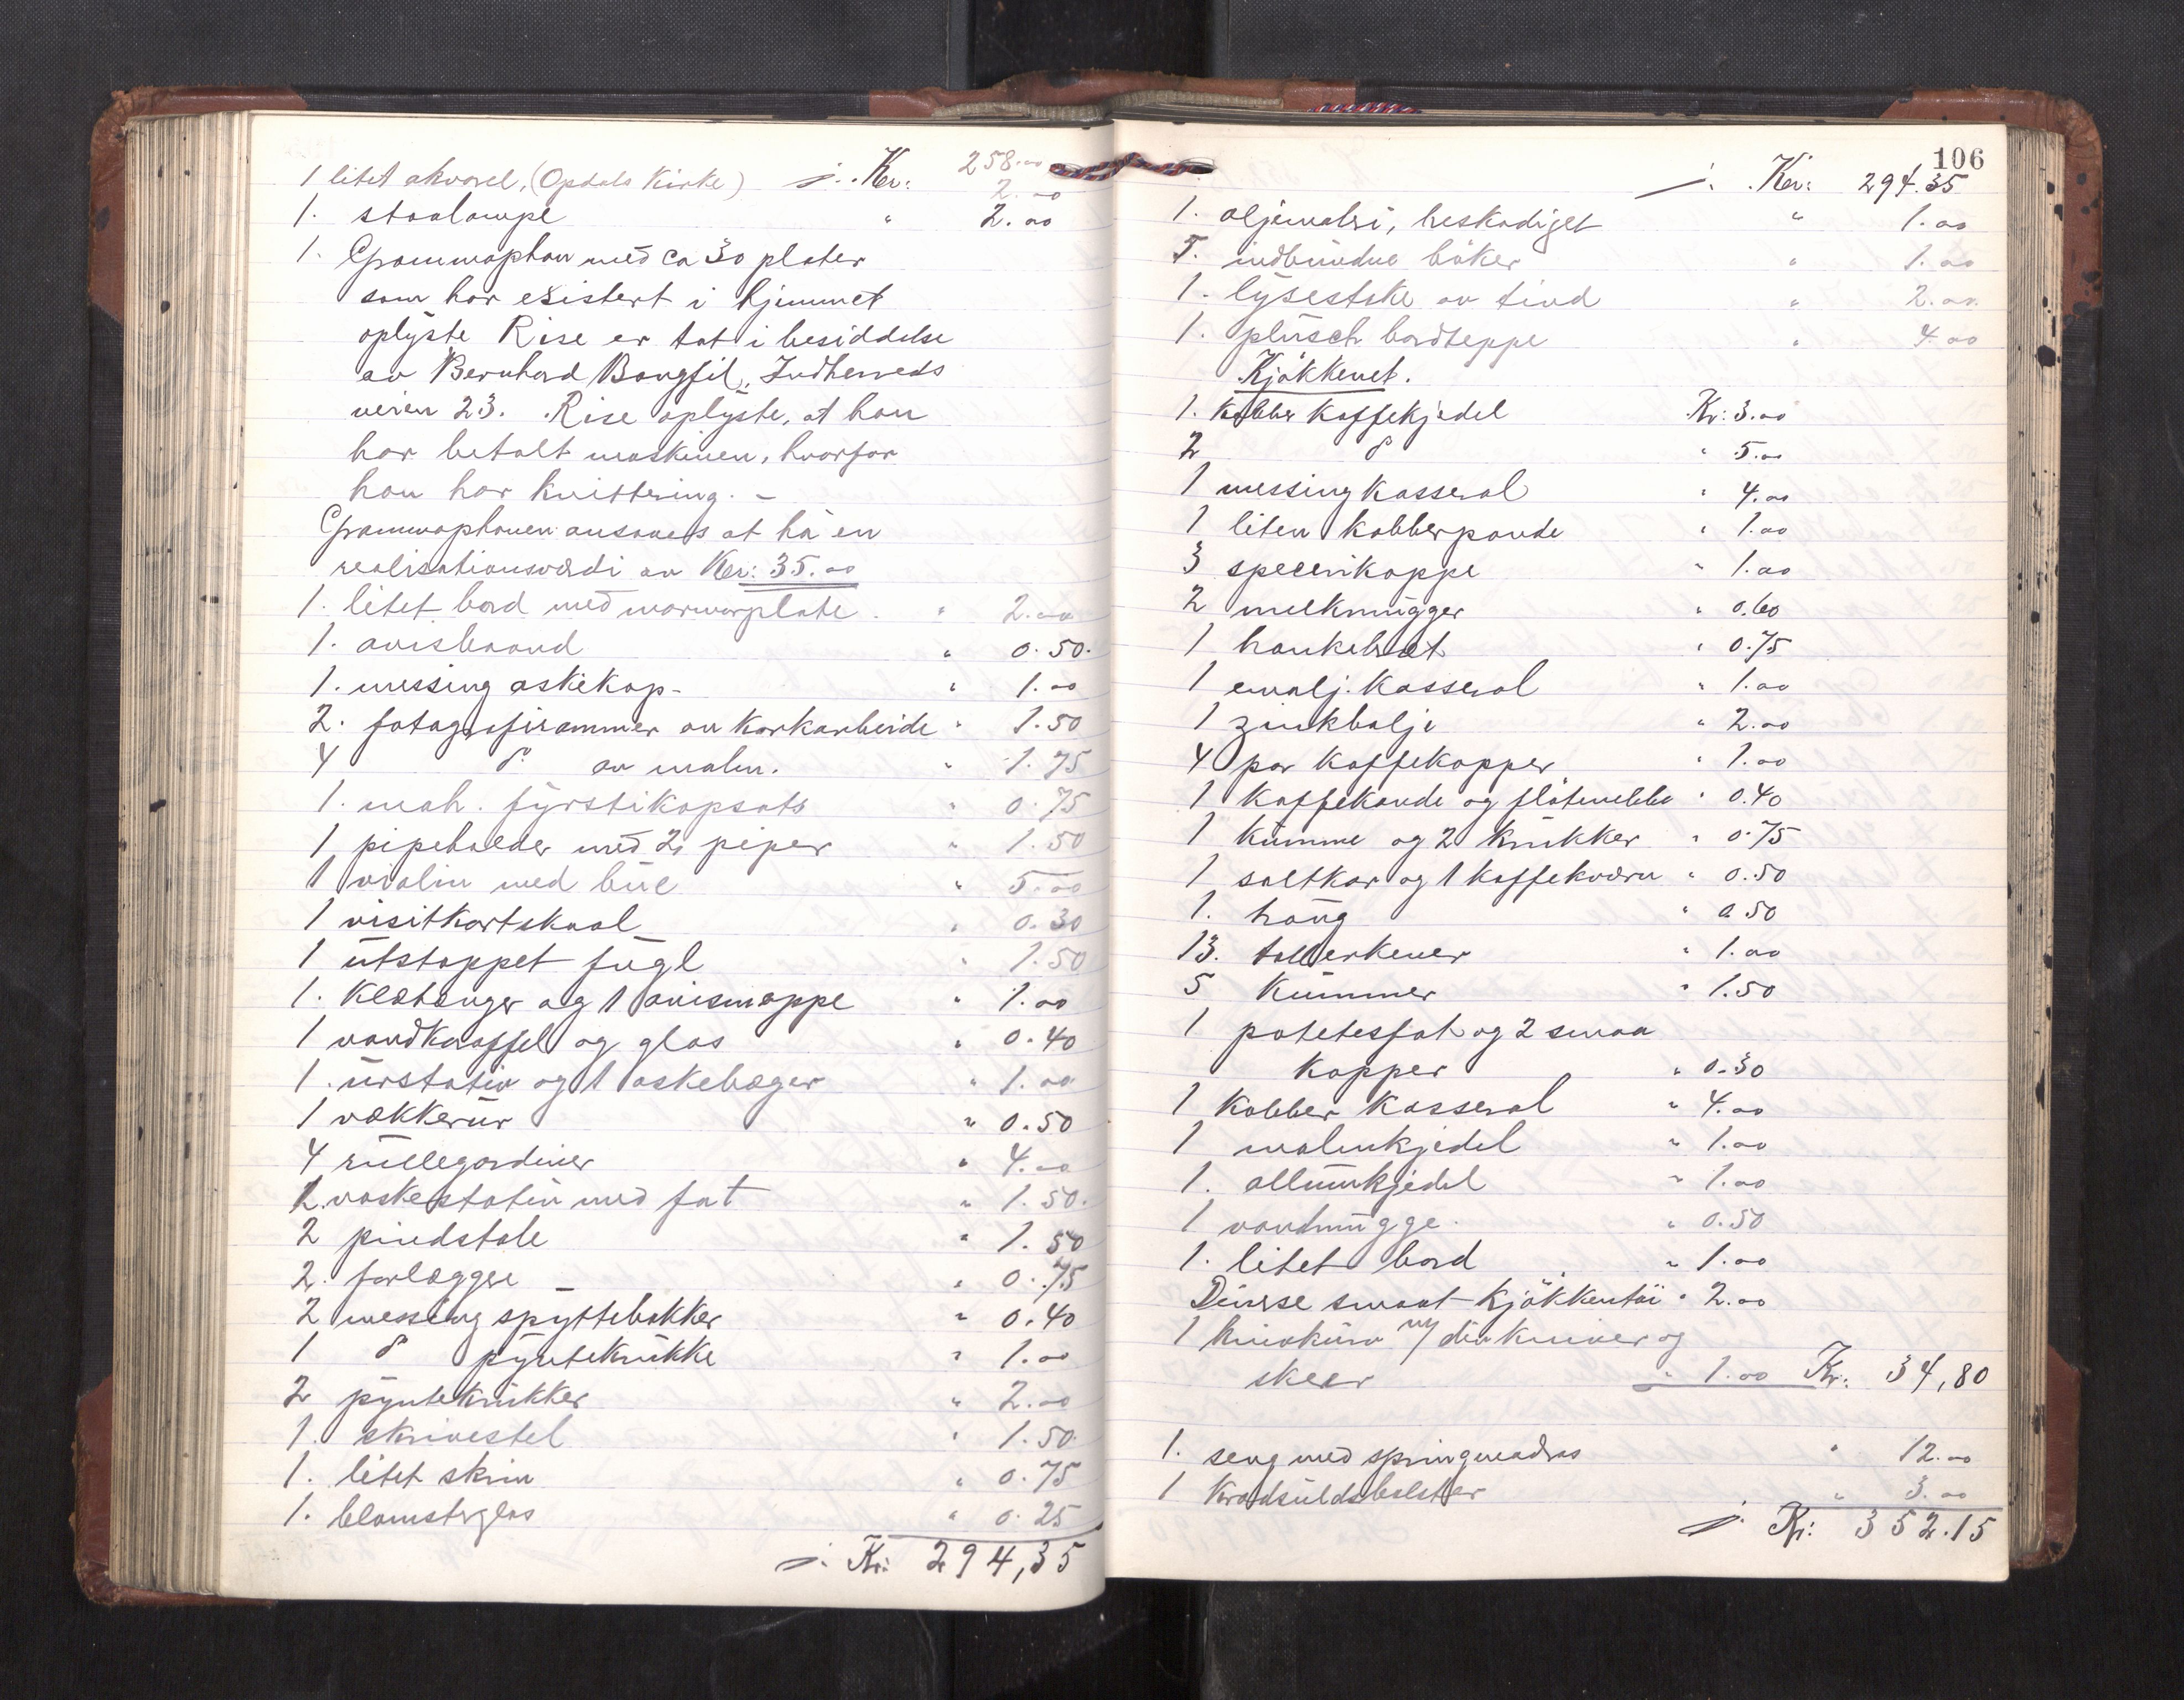 j. Kr: 258.00
1 litet akvarel, (Opdals Kirke) 2.00
1. staalampe " 2.00
1. Grammophon med ca 30 plater
som har existert i hjemmet
oplyste Rise er tat i besiddelse
av Bernhard Bangfil, Indherreds
veien 23. Rise oplyste, at han
har betalt maskinen, hvorfor
han har kvittering. -
Grammophonen ansaaes at ha en
realisationsværdi av Kr: 35.00
1. litet bord med marmorplate. " 2.00
1. avisbaand " 0.50.
1. messing askekop - " 1.00
2. fotografirammer av korkarbeide " 1.50
4 do av malm. " 1.75
1. mah. fyrstikopsats " 0.75
1 pipeholder med 2 piper " 1.50
1 violin med bue " 5.00
1 visitkortskaal " 0.30
1 utstoppet fugl " 1.50
1. klæhenger og 1 avismappe " 1.00
1 vandkaraffel og glas " 0.40
1. urstativ og 1 askebæger " 1.00
1 vækkerur " 0.50
4 rullegardiner " 4.00
1. vaskestativ med fat " 1.50.
2 pindstole " 1.50
2. forlægger - " 0.75
2 messing spyttebakker " 0.40
1 do pyntekrukke " 1.00
2 pyntekrukker " 2.00
1. skrivestel " 1.50
1. litet skrin " 0.75
1. blomsterglas " 0.25
j. Kr: 294,35
106
j. Kr: 294.35
1. oljemaleri, beskadiget " 1.00
5. indbundne bøker " 1.00
1. lysestake av tind " 2.00
1. plusch bordteppe " 4.00
Kjøkkenet.
1. kobber kaffekjedel Kr: 3.00
2 do " 5.00
1 messing kasserol " 4.00
1 liten kobberpande " 1.00
3 specerikoppe " 1.00
2 melkmugger " 0.60
1 kankebræt " 0.75
1 emalj. kasserol " 1.00
1 zinkbalje " 2.00
4 par kaffekopper " 1.00
1 kaffekande og fløtenebbe " 0.40
1 kumme og 2 krukker " 0.75
1 saltkar og 1 kaffekværn " 0.50
1. haug " 0.50
13. tallerkener " 1.00
5 kummer " 1.50
1 potetesfat og 2 smaa
kopper " 0.30
1 kobber kasserol " 4.00
1 malmkjedel " 1.00
1. allumkjedel " 1.00
1 vandmugge. " 0.50
1. litet bord " 1.00
Diverse smaat kjøkkentøi " 2.00
1 knivkurv m/ div kniver og
skeer " 1.00 Kr: 34,80
1. seng med springmadras " 12.00
1 Kradsuldsbolster " 3.00
j. Kr: 352.15